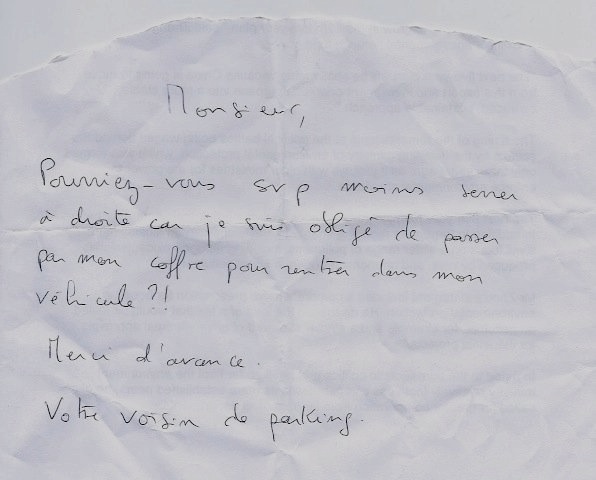 Monsieur,
Pourriez-vous svp moins serrer
à droite car je suis obligé de passer
par mon coffre pour rentrer dans mon
véhicule ?!
Merci d'avance.
Votre voisin de parking.